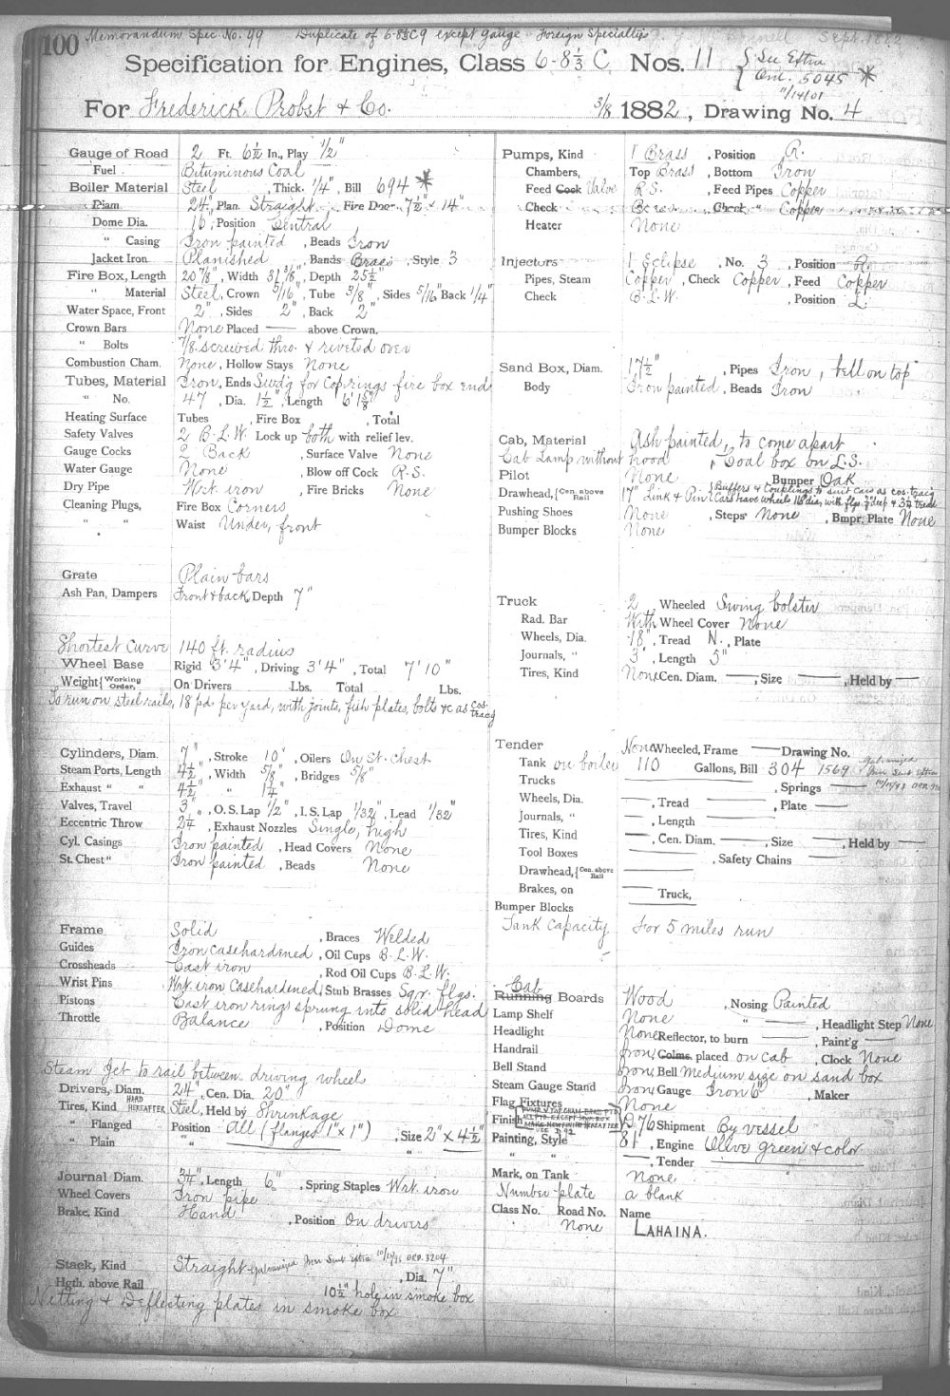 100 Memorandum Spec. No. 99 Duplicate of 6-8⅓C9 except gauge - Foreign Specialties Sept. 1882
Specification for Engines, Class 6-8⅓ C, Nos. 11 { See Extra
Ord. 5045 *
11/14/01
For Frederick Probst & Co. 3/8 1882, Drawing No. 4
Gauge of Road 2 Ft. 6½ In., Play ½"
Fuel Bituminous Coal
Boiler Material Steel, Thick. ¼", Bill 694 *
Diam. 24", Plan Straight, Fire Door 7½" x 14"
Dome Dia. 16", Position Central
" Casing Iron painted, Beads Iron
Jacket Iron Planished, Bands Brass, Style 3
Fire Box, Length 20⅞", Width 31⅜", Depth 25½"
" Material Steel, Crown 5/16", Tube 3/8", Sides 5/16" Back ¼"
Water Space, Front 2", Sides 2", Back 2"
Crown Bars None Placed — above Crown.
" Bolts 7/8" screwed thro. & riveted over
Combustion Cham. None, Hollow Stays None
Tubes, Material Iron, Ends Swd'g for Cop. rings fire box end
" No. 47, Dia. 1½", Length 6' 1⅝"
Heating Surface Tubes , Fire Box , Total
Safety Valves 2 B.L.W. Lock up both with relief lev.
Gauge Cocks 2 Back, Surface Valve None
Water Gauge None, Blow off Cock R.S.
Dry Pipe Wrt. iron, Fire Bricks None
Cleaning Plugs, Fire Box Corners
" " Waist Under, front
Grate Plain bars
Ash Pan, Dampers Front & back Depth 7"
Shortest Curve 140 ft. radius
Wheel Base Rigid 3'4", Driving 3'4", Total 7'10"
Weight { Working Order, On Drivers Lbs. Total Lbs.
To run on steel rails, 18 pd per yard, with joints, fish plates, bolts &c as cos. tracing
Cylinders, Diam. 7", Stroke 10", Oilers On St. chest
Steam Ports, Length 4½", Width 5/8", Bridges 5/8"
Exhaust " " 4½" " 1¼"
Valves, Travel 3", O. S. Lap ½", I. S. Lap 1/32", Lead 1/32"
Eccentric Throw 2¼", Exhaust Nozzles Single, high
Cyl. Casings Iron painted, Head Covers None
St. Chest " Iron painted, Beads None
Frame Solid, Braces Welded
Guides Iron casehardened, Oil Cups B.L.W.
Crossheads Cast iron, Rod Oil Cups B.L.W.
Wrist Pins Wrt. iron Casehardened, Stub Brasses Sqr. flgs.
Pistons Cast iron rings sprung into solid head
Throttle Balance, Position Dome
Steam Jet to rail between driving wheels
Drivers, Diam. 24", Cen. Dia. 20"
Tires, Kind HARD HEREAFTER Steel, Held by Shrinkage
" Flanged Position All (flanges 1" x 1"), Size 2" x 4½"
" Plain " " " "
Journal Diam. 3¼", Length 6", Spring Staples Wrt. iron
Wheel Covers Iron pipe
Brake, Kind Hand, Position On drivers
Stack, Kind Straight - Galvanized Iron Sent Extra
Hgth. above Rail , Dia. 7"
10½" hole in smoke box
Netting & Deflecting plates in smoke box
Pumps, Kind 1 Brass, Position R.
Chambers, Top Brass, Bottom Iron
Feed Cock Valve R.S., Feed Pipes Copper
Check Brass, Check " Copper
Heater None
Injectors 1 Eclipse, No. 3, Position
Pipes, Steam Copper, Check Copper, Feed Copper
Check B.L.W., Position L.
Sand Box, Diam. 17½", Pipes Iron, bell on top
Body Iron painted, Beads Iron
Cab, Material Ash painted, to come apart
Cab Lamp without hood, Coal box on L.S.
Pilot None Bumper Oak
Drawhead, { Cen. above Rail 17" Link & Pin { Buffers & Couplings to suit Cars as cos. trac'g
Cars have wheels 18" dia, with flgs. ¾" deep & 3¼" tread
Pushing Shoes None, Steps None, Bmpr. Plate None
Bumper Blocks None
Truck 2 Wheeled Swing bolster
Rad. Bar With Wheel Cover None
Wheels, Dia. 18", Tread N., Plate
Journals, " 3", Length 5"
Tires, Kind None Cen. Diam. —, Size —, Held by —
Tender None Wheeled, Frame — Drawing No.
Tank on boiler 110 Gallons, Bill 304 1569 Galvanized Iron Sent Extra
Trucks —, Springs —
Wheels, Dia. —, Tread —, Plate —
Journals, " —, Length —
Tires, Kind —, Cen. Diam. —, Size —, Held by —
Tool Boxes —, Safety Chains —
Drawhead, { Cen. above Rail —
Brakes, on — Truck,
Bumper Blocks
Tank Capacity For 5 miles run
Cab
Running Boards Wood, Nosing Painted
Lamp Shelf None " —, Headlight Step None
Headlight None Reflector, to burn —, Paint'g —
Handrail Iron, Colms. placed on cab, Clock None
Bell Stand Iron, Bell Medium size on sand box
Steam Gauge Stand Iron Gauge Iron 6", Maker
Flag Fixtures None
Finish P. 76 Shipment By vessel
Painting, Style 81, Engine Olive green & color
" " —, Tender —
Mark, on Tank None
Number plate a blank
Class No. Road No. Name
None LAHAINA.